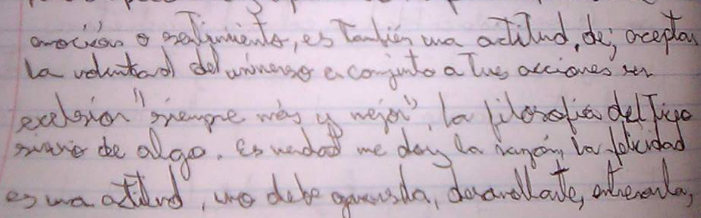 emoción o sentimiento, es también una actitud, de; aceptar
la voluntad del universo en conjunto a tus acciones sin
"siempre más y mejor", la filosofía del
de algo. es verdad me doy la razón, la felicidad
es una actitud, uno debe desarrollarla, entrenarla,